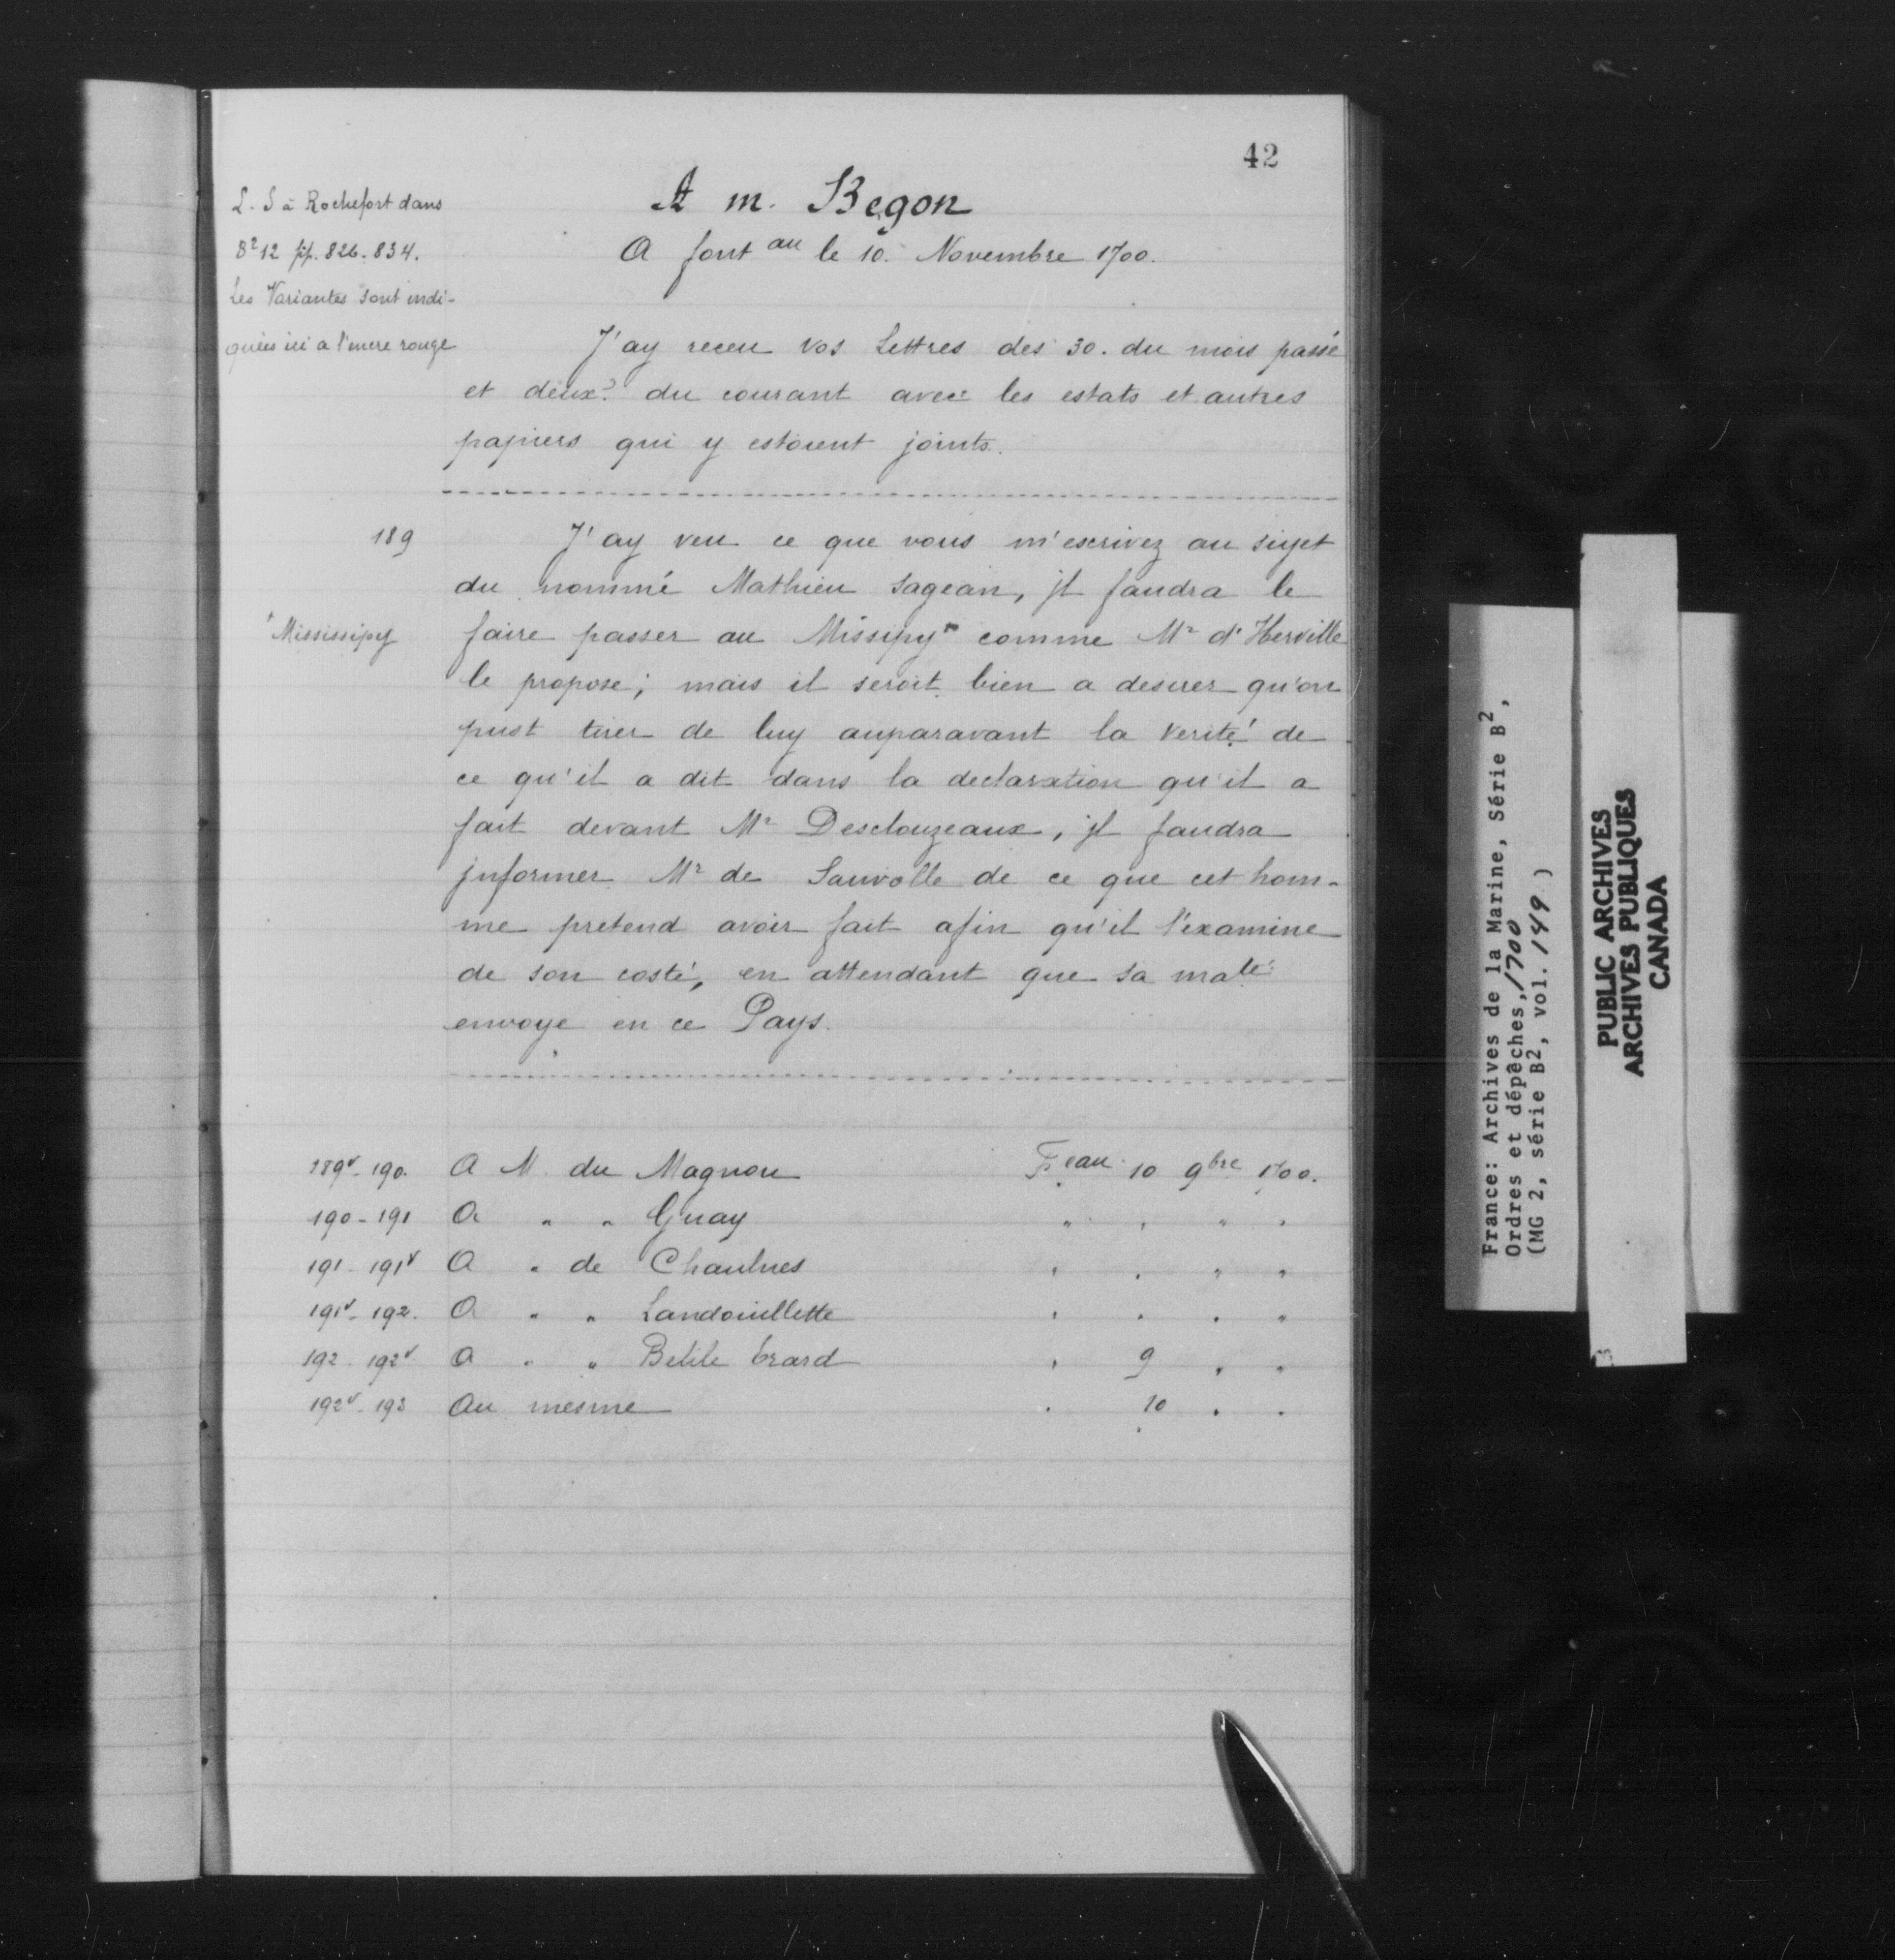 42
A m. Begon
A font au le 10. Novembre 1700.
L. S à Rochefort dans
B² 12 pp. 826. 834.
Les Variantes sont indi-
quées ici a l'encre rouge
J'ay receu vos Lettres des 30. du mois passé
et deux.e du courant avec les estats et autres
papiers qui y estoient joints.
189
J'ay veu ce que vous m'escrivez au sujet
du nommé Mathieu Sagean, jl faudra le
* Mississipy
faire passer au Missipy* comme Mr d'Herville
le propose; mais il seroit bien a desirer qu'on
pust tirer de luy auparavant la Verité de
ce qu'il a dit dans la declaration qu'il a
fait devant Mr Desclouzeaux, jl faudra
jnformer Mr de Sauvolle de ce que cet hom-
me pretend avoir fait afin qu'il l'examine
de son costé, en attendant que sa maté
envoye en ce Pays.
189v- 190. A M. du Magnou Feau 10 9bre 1700.
190 - 191 A " " Guay " " " "
191 - 191v A " de Chaulnes " " " "
191v- 192. A " " Landouillette " " " "
192 - 192v A " " Belile Erard " 9 " "
192v- 193 Au mesme " 10 " "
France: Archives de la Marine, Série B²,
Ordres et dépêches, 1700
(MG 2, série B², vol. 149 )
PUBLIC ARCHIVES
ARCHIVES PUBLIQUES
CANADA